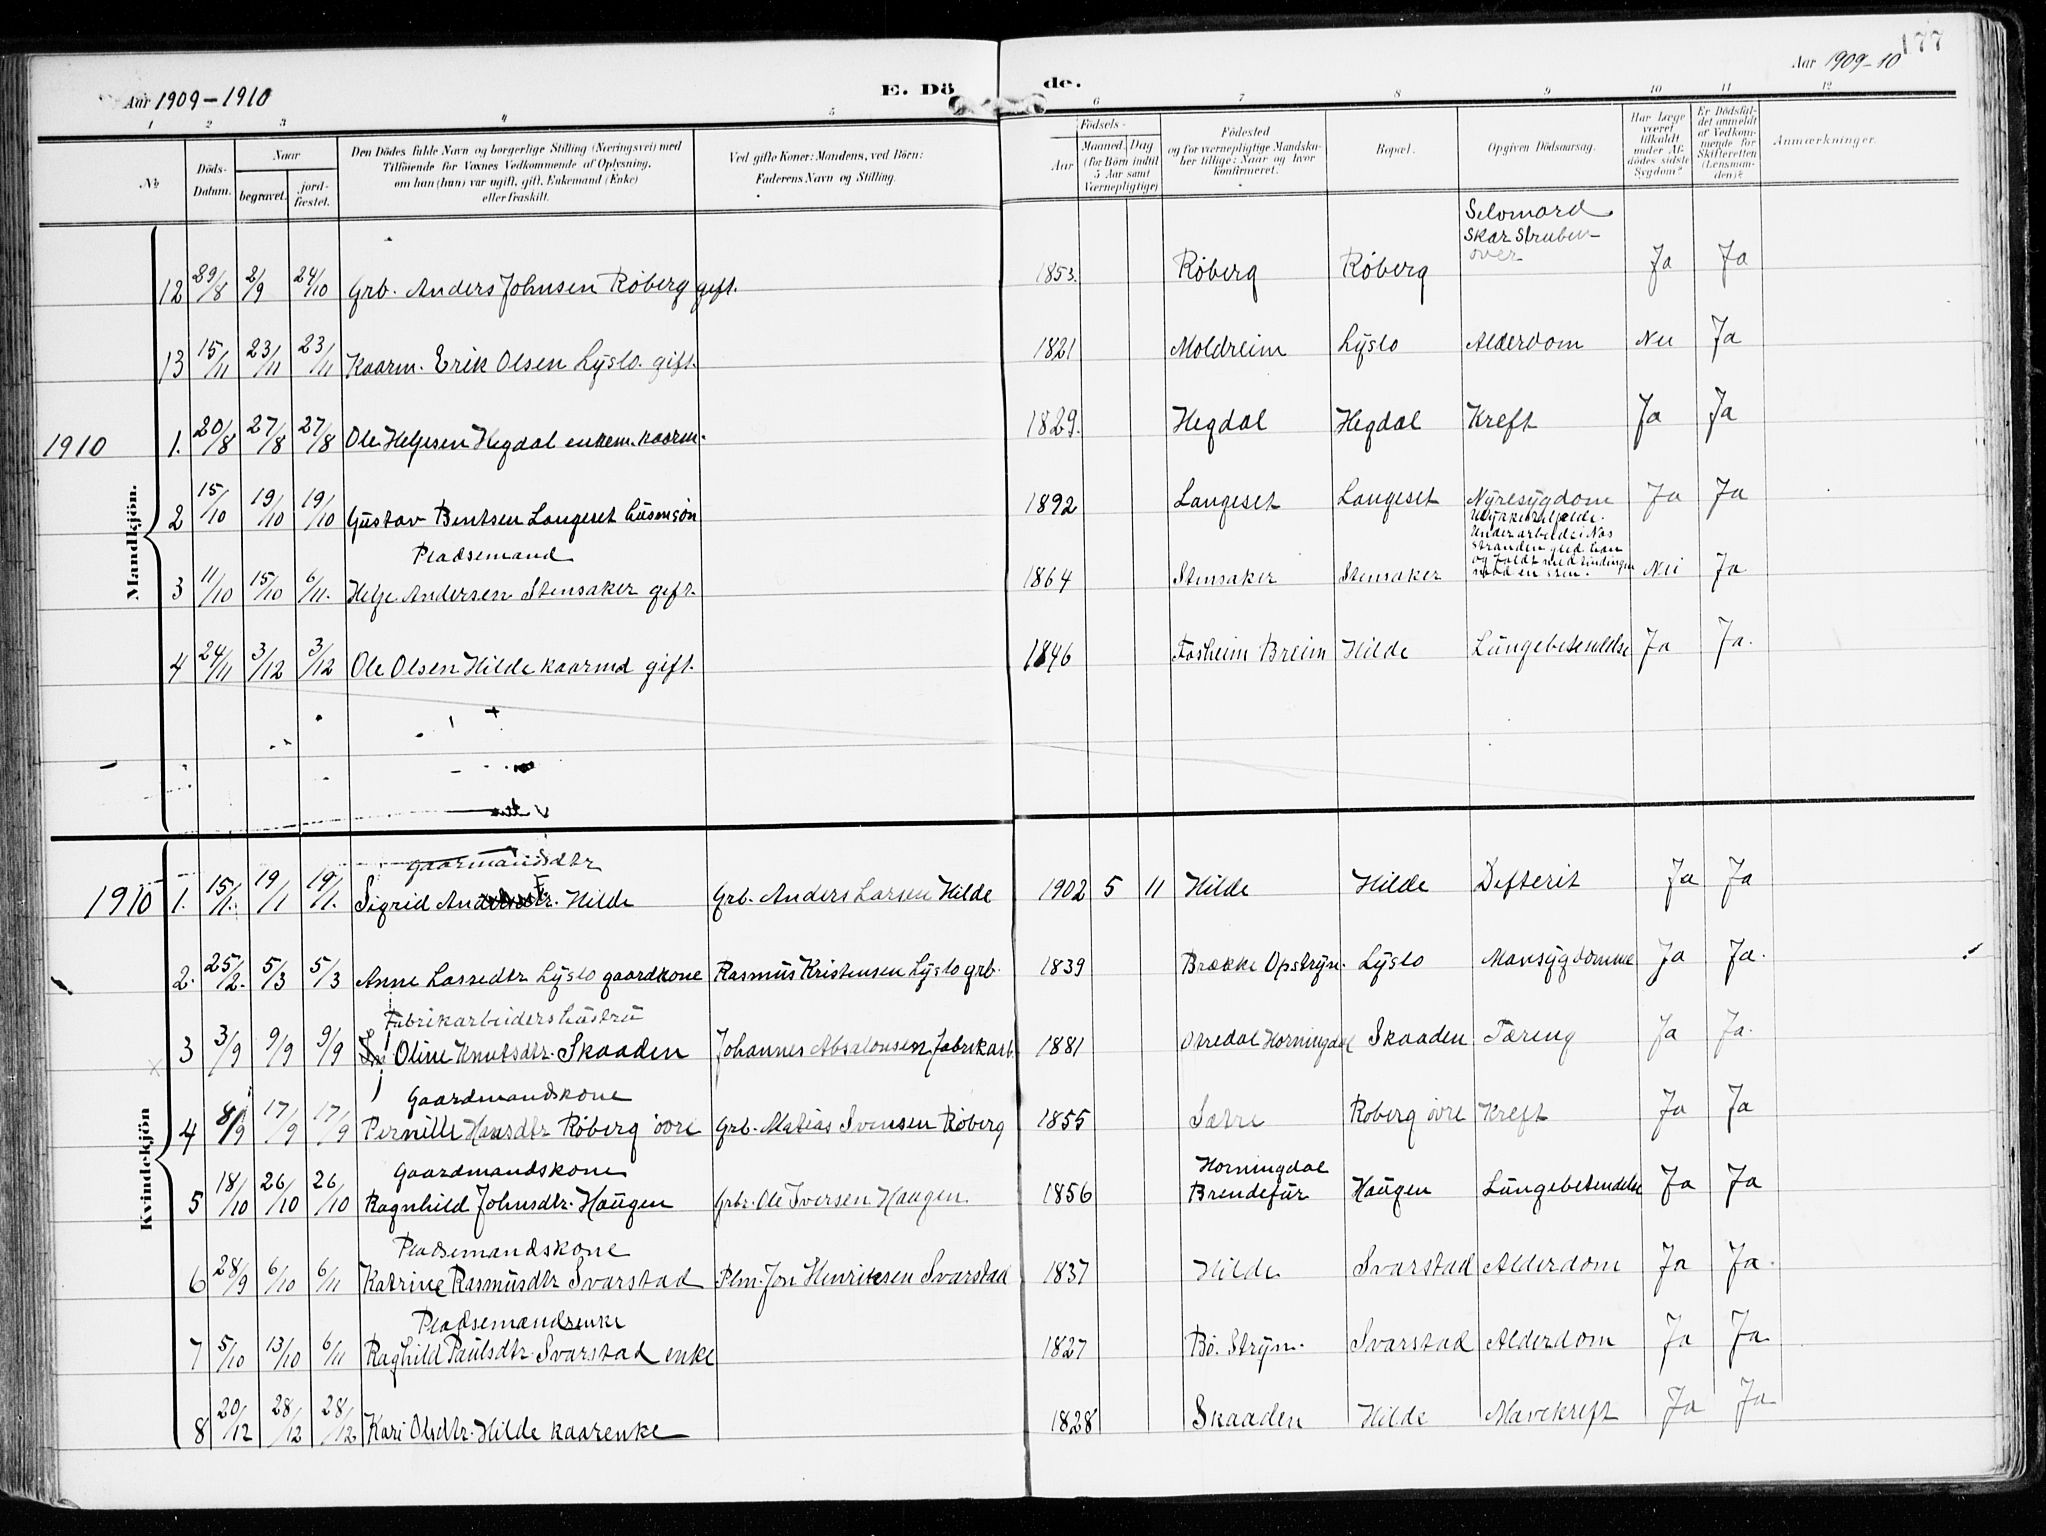 177
Aar 1909-1910
E. Dö
de.
Aar 1909-10
1 2 3 4 5 6 7 8 9 10 11 12
No
Döds-Datum.
Naar
begravet.
jord-fæstet.
Den Dödes fulde Navn og borgerlige Stilling (Næringsvei) med
Tilföiende for Voxnes Vedkommende af Oplysning,
om han (hun) var ugift, gift, Enkemand (Enke)
eller fraskilt.
Ved gifte Koner: Mandens, ved Börn:
Faderens Navn og Stilling.
Födsels-
Aar
Maaned Dag
(for Börn indtil
5 Aar samt
Værnepligtige)
Födested
og for værnepligtige Mandska-
ber tillige: Naar og hvor
konfirmeret.
Bopæl.
Opgiven Dödsaarsag.
Har Læge
været
tilkaldt
under Af-
dödes sidste
Sygdom?
Er Dödsfal-
det anmeldt
af Vedkom-
mende for
Skifteretten
(Lensman-
den)?
Anmærkninger.
Mandkjön.
Selvmord
Skar Struben
over
12 29/8 2/9 24/10 Grb. Anders Johnsen Røberg gift. 1853. Røberg Røberg Ja Ja
13 15/11 23/11 23/11 Kaarm. Erik Olsen Lyslo. gift. 1821 Moldreim Lyslo Alderdom Nei Ja
1910 1. 20/8 27/8 27/8 Ole Helgesen Hegdal enkem. kaarm. 1829. Hegdal Hegdal Kreft Ja Ja
2 15/10 19/10 19/10 Gustav Bentsen Langeset husmsøn 1892 Langeset Langeset Nyresygdom Ja Ja
Pladsemand
Ulykkestilfælde.
Under arbeide i Nos
stranden gled han
og faldt med tindingen
mod en sten.
3 11/10 15/10 6/11. Helge Andersen Stensaker gift. 1864 Stensaker Stensaker Nei Ja
4 24/11 3/12 3/12 Ole Olsen Hilde kaarmd gift. 1846 Fosheim Breim Hilde Lungebetendelse Ja Ja.
Kvindekjön
Gaarmandsdtr
1910 1. 15/1. 19/1 19/1. Sigrid Hilde Grb. Anders Larsen Hilde 1902 5 11 Hilde Hilde Difterit Ja Ja
2. 25/2. 5/3 5/3 Anne Lassedtr Lyslo gaardkone Rasmus Kristensen Lyslo grb. 1839 Brække Opstryn. Lyslo Mavsygdomme Ja Ja.
Fabrikarbeidershustru
3 3/9 9/9 9/9 Oline Knutsdtr. Skaaden Johannes Absalonsen Fabrikarb. 1881 Horningdal Skaaden Tæring Ja Ja.
Gaardmandskone
4 8/9 17/9 17/9 Pernille Hansdtr Røberg øvre Grb. Matias Svensen Røberg 1855 Sætre Røberg øvre Kreft Ja Ja
Gaardmandskone
Horningdal
5 18/10 26/10 26/10 Ragnhild Johnsdtr. Haugen Grbr. Ole Iversen Haugen. 1856 Brendefur Haugen Lungebetendelse Ja Ja
Pladsemandskone
6 28/9 6/10 6/11 Katrine Rasmusdtr Svarstad Plm. Jon Henriksen Svarstad 1837 Hilde Svarstad Alderdom Ja Ja.
Pladsemandsenke
7 5/10 13/10 6/11 Raghild Paulsdtr. Svarstad enke 1827 Bø. Stryn. Svarstad Alderdom Ja Ja
8 20/12 28/12 28/12 Kari Olsdtr. Hilde kaarenke 1828 Skaaden Hilde Mavekreft Ja Ja